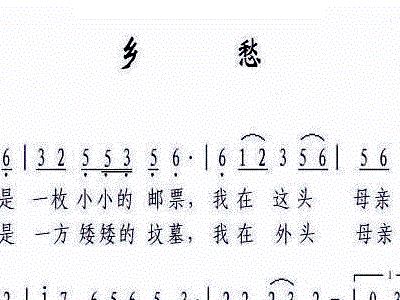 乡 愁
6 | 3 2 5 5 3 5 6 · | 6 1 2 3 5 6 | 5 6
是 一枚 小小的 邮票, 我在 这头 母亲
是 一方 矮矮的 坟墓, 我在 外头 母亲